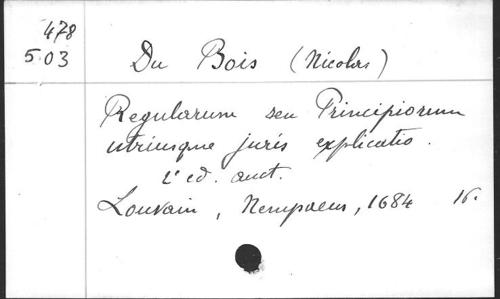 478
503
Du Bois (Nicolas)
Regularum seu Principiorum
utriusque juris explicatio.
2e ed. auct.
Louvain, Nempaeus, 1684 16.